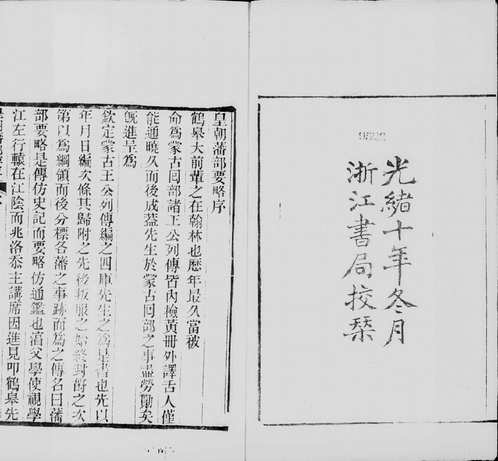 光緒十年冬月
浙江書局挍琹
皇朝藩部要略序
鶴皋大前輩之在翰林也歷年最久當被
命爲蒙古回部諸王公列傳皆內檢黃冊外譯舌人僅
能通曉久而後成蓋先生於蒙古回部之事盡勞勩矣
旣進呈爲
欽定蒙古王公列傳編之四庫先生之爲是書也先以
年月日編次條其歸附之先後叛服之始終封爵之次
第以爲綱領而後分標各藩之事跡而爲之傳名曰藩
部要略是傳仿史記而要略仿通鑑也淯父學使視學
江左行轅在江陰而兆洛忝主講席因進見叩鶴皋先